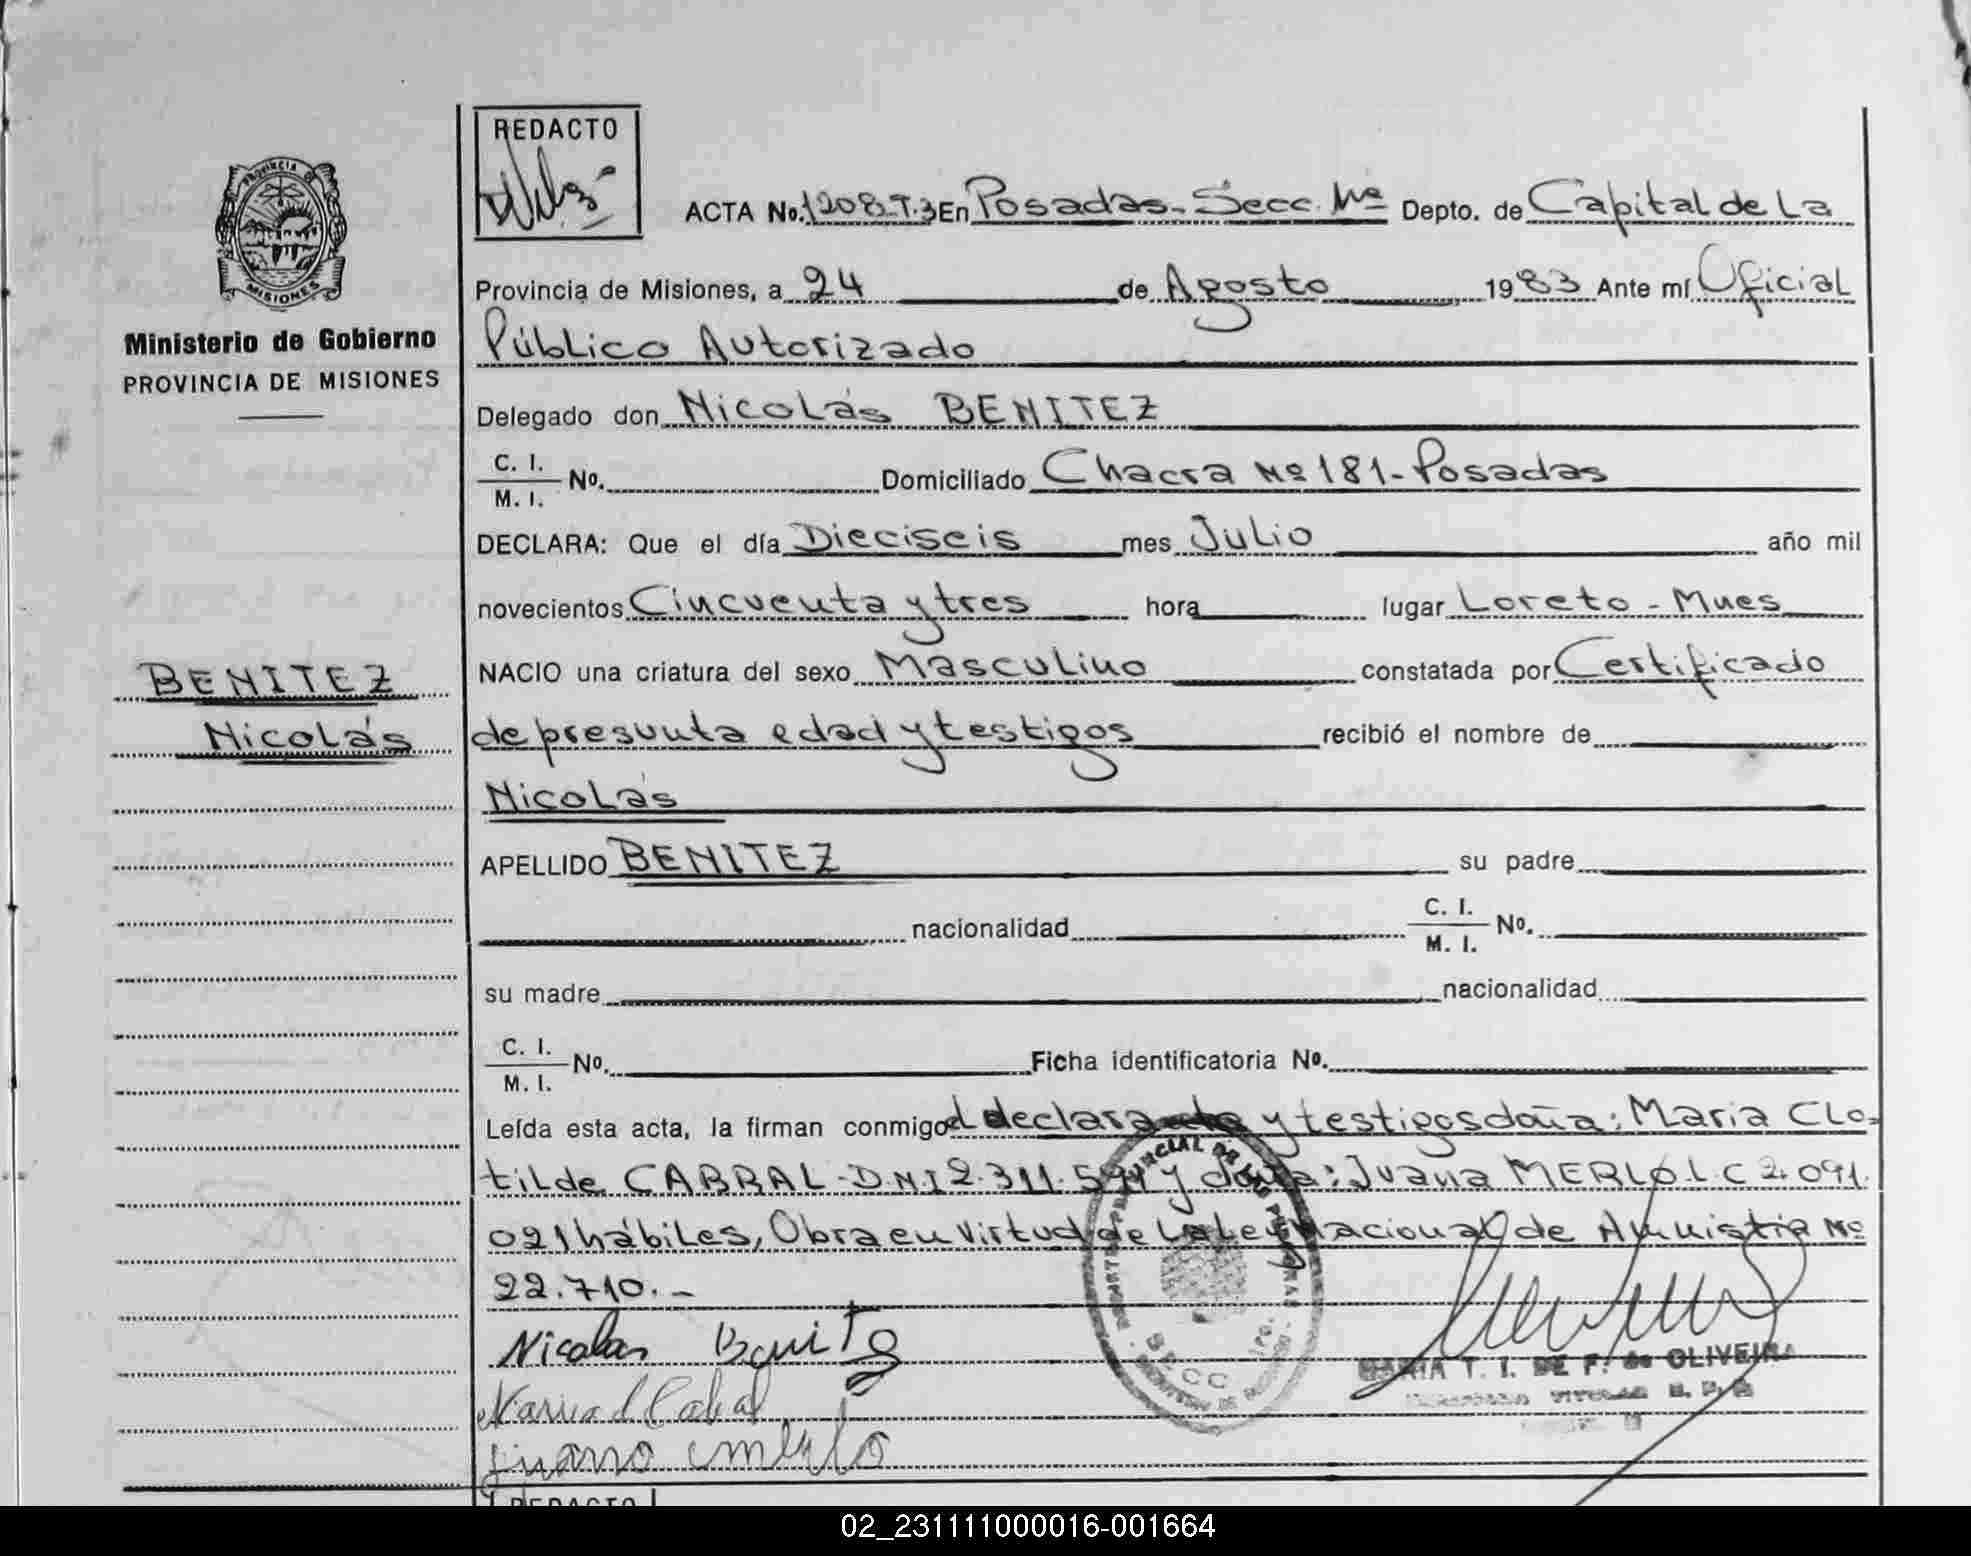 REDACTO
ACTA No. 1208-T.3 En Posadas-Secc. Mª Depto. de Capital de La
PROVINCIA DE
MISIONES
Provincia de Misiones, a 24 de Agosto 1983 Ante mí Oficial
Ministerio de Gobierno
PROVINCIA DE MISIONES
Público Autorizado
Delegado don Nicolás BENITEZ
C. I.
M. I. No. Domiciliado Chacra Nº 181-Posadas
DECLARA: Que el día Dieciseis mes Julio año mil
novecientos Cincuenta y tres hora lugar Loreto - Mnes
BENITEZ
Nicolás
NACIO una criatura del sexo Masculino constatada por Certificado
de presunta edad y testigos recibió el nombre de
Nicolás
APELLIDO BENITEZ su padre
nacionalidad C. I.
M. I. No.
su madre nacionalidad
C. I.
M. I. No. Ficha identificatoria No.
Leída esta acta, la firman conmigo el declarante y testigos doña: Maria Clo-
tilde CABRAL-D.N.I 2.311.594 y doña: Juana MERLO.L.C 2.091.
021 hábiles, Obra en virtud de La Ley Nacional de Amnistia Nº
22.710.-
Nicolas Benitez
Maria C Cabral
Juana merlo
MARIA T. I. DE F. de OLIVEIRA
REDACTO
02_231111000016-001664